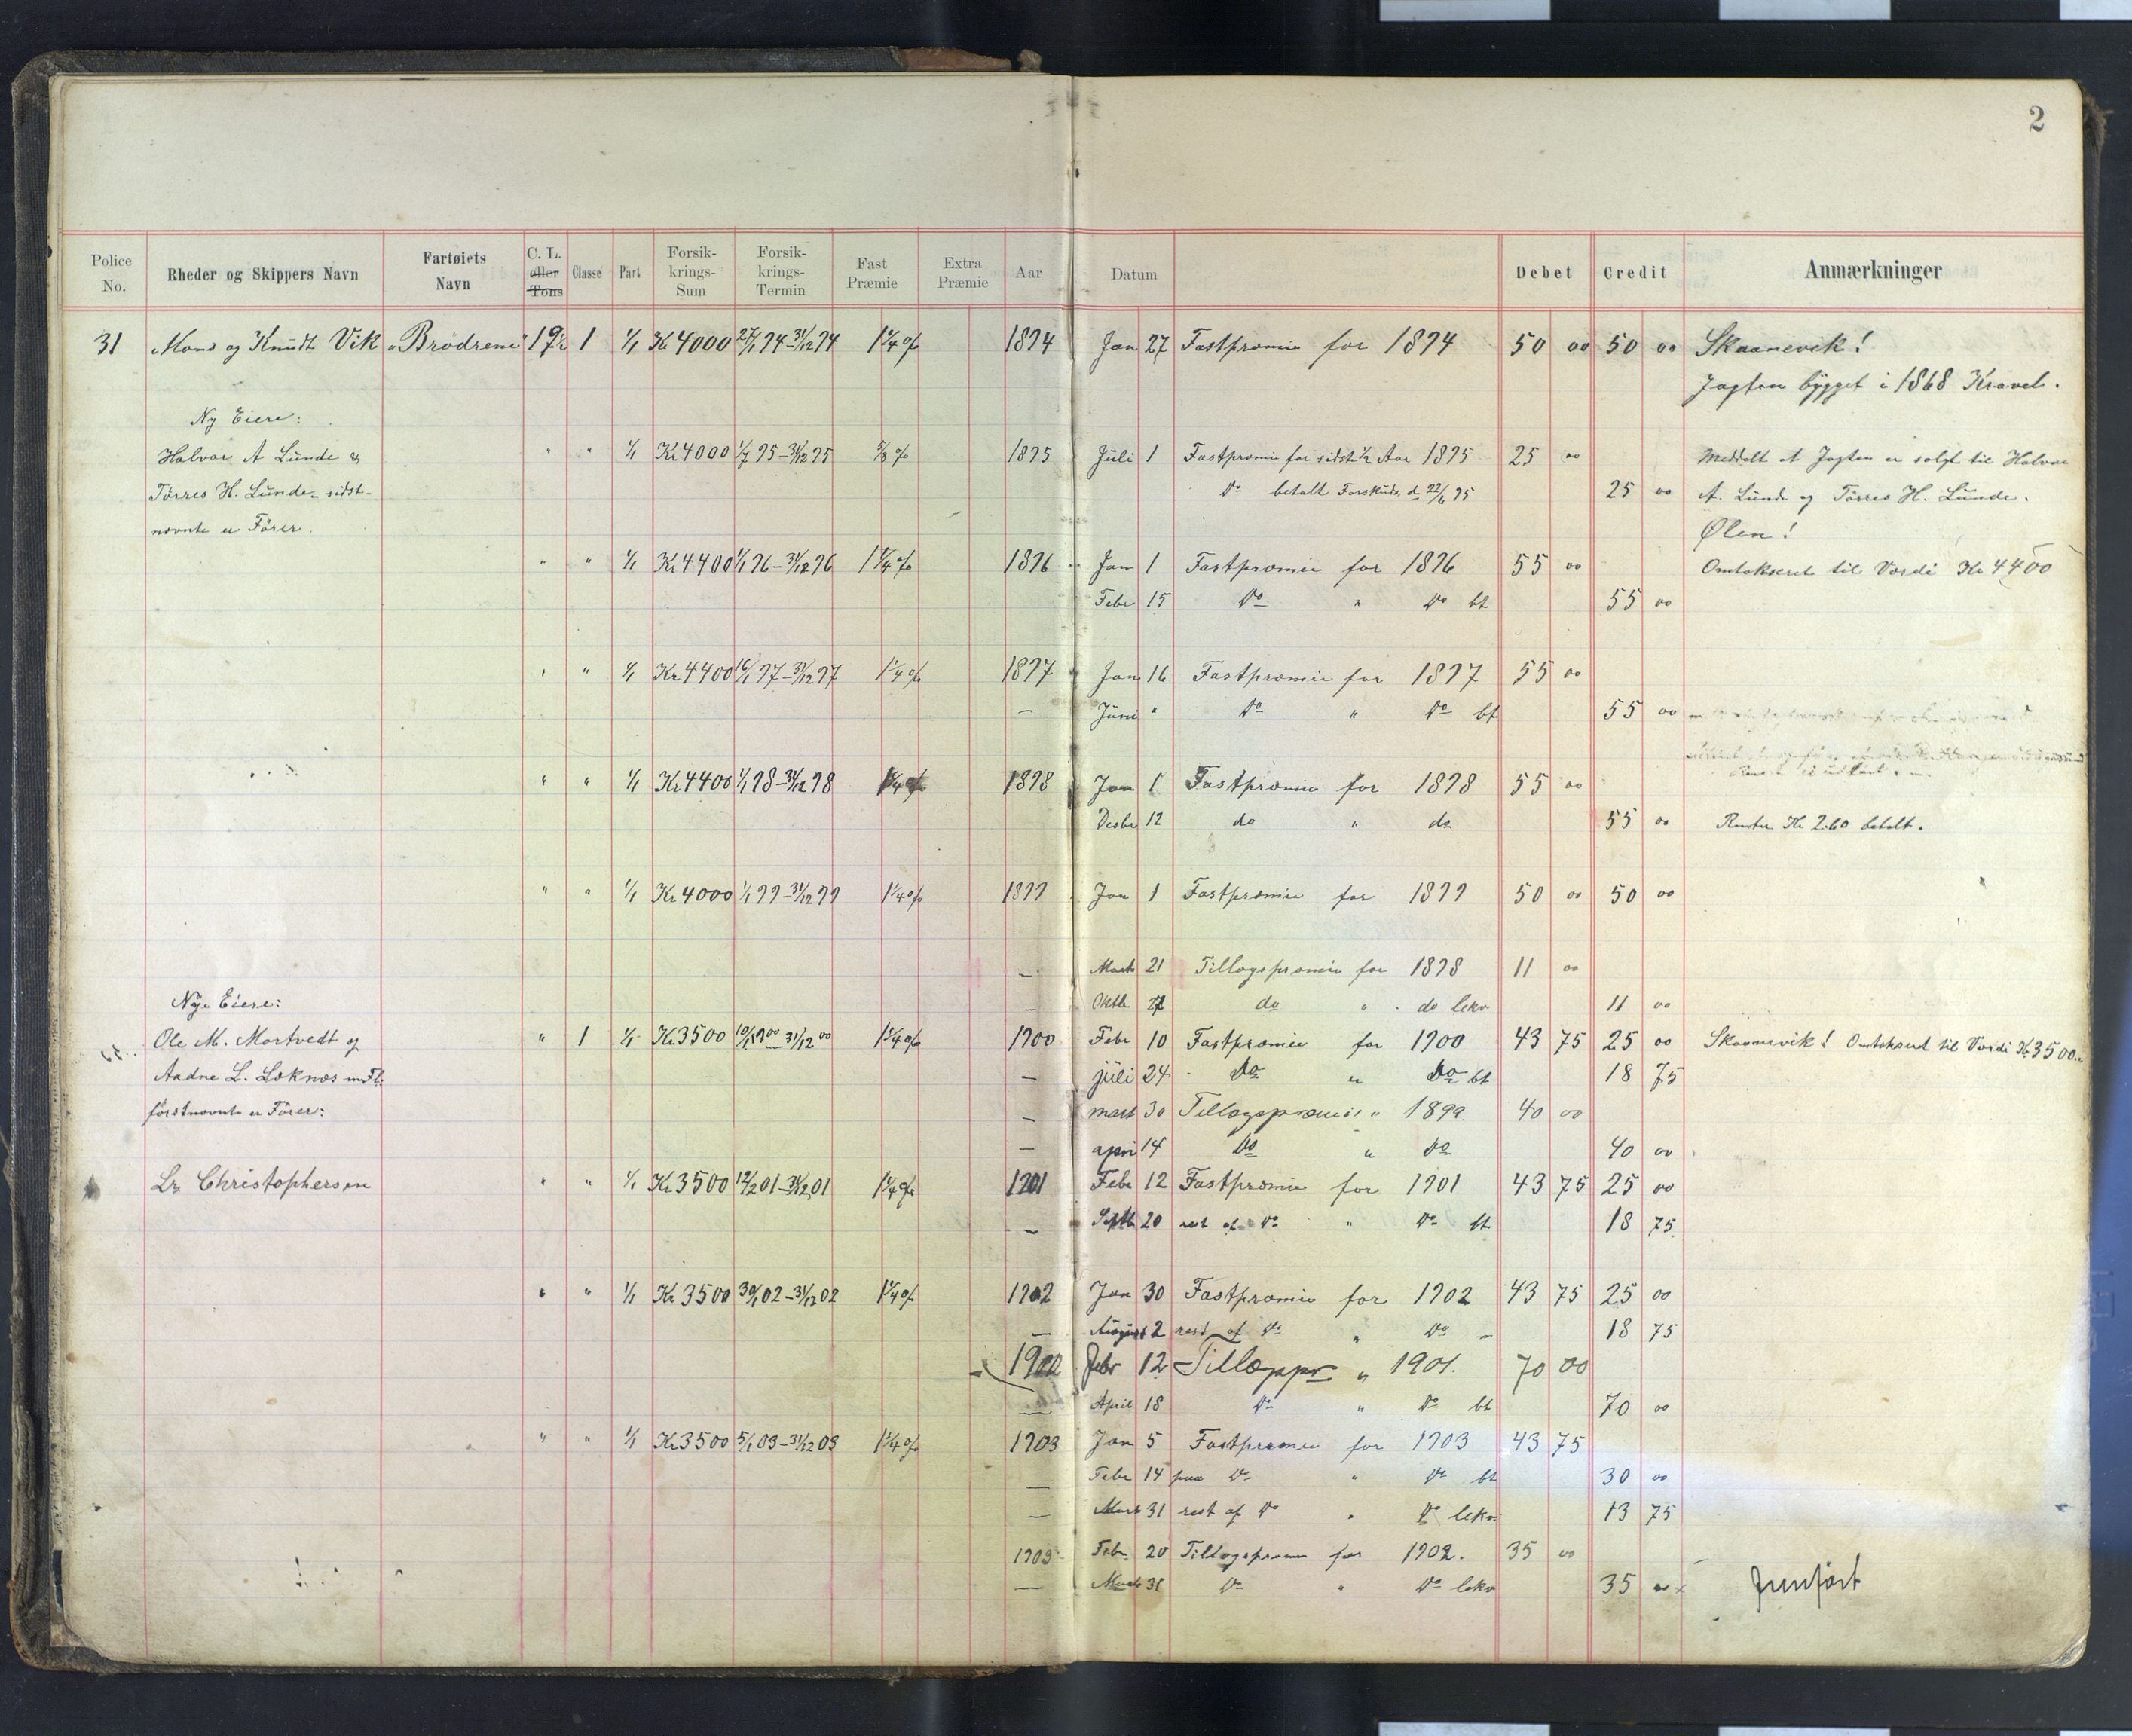 2
Police No. Rheder og Skippers Navn Fartøiets Navn C. L. eller Tons Classe Part Forsikkrings-Sum Forsikkrings-Termin Fast Præmie Extra Præmie Aar Datum Debet Credit Anmærkninger
31 Mons og Knudt Vik „Brødrene" 1 1/1 Kr 4000 27/1 94-31/12 94 1 1/4 % 1894 Jan 27 Fastpræmie for 1894 50 00 50 00 Skaanevik!
Jagten bygget i 1868 Kravel.
Ny Eiere:
Halvor A Lunde & " " 1/1 Kr 4000 1/7 95-31/12 95 5/8 % 1895 Juli 1 Fastpræmie for sidst 1/2 Aar 1895 25 00 Meddelt at Jagten er solgt til Halvor
Tørres H. Lunde. sidst- Do betalt Forskuds. d 22/6 95 25 00 A. Lunde og Tørres H. Lunde.
nævnte er Fører. Ølen!
" " 1/1 Kr 4400 1/1 96-31/12 96 1 1/4 % 1896 Jan 1 Fastpræmie for 1896 55 00 Omtakseret til Værdi Kr 4400
Febr 15 Do " Do bt 55 00
" " 1/1 Kr 4400 16/1 97-31/12 97 1 1/4 % 1897 Jan 16 Fastpræmie for 1897 55 00
— Juni " Do " Do bt 55 00
" " 1/1 Kr 4400 1/1 98-31/12 98 1 1/4 % 1898 Jan 1 Fastpræmie for 1898 55 00
Desbr 12 do " do 55 00 Renter Kr 2.60 betalt.
" " 1/1 Kr 4000 1/1 99-31/12 99 1 1/4 % 1899 Jan 1 Fastpræmie for 1899 50 00 50 00
— Marts 21 Tillægspræmie for 1898 11 00
Nye Eiere: — Oktb do " do lekv 11 00
Ole M. Mortvedt og " 1 1/1 Kr 3500 00-31/12 00 1 1/4 % 1900 Febr 10 Fastpræmie for 1900 43 75 25 00 Skaanevik! Omtakserd til Værdi Kr 3500.-
Aadne L. Løknæs — juli 24 Do " Do bt 18 75
førstnævnte er Fører: — mart 30 Tillægspræmie " 1899. 40 00
— april 14 Do " Do 40 00
Lr. Christophersen " " 1/1 Kr 3500 12/2 01-31/12 01 1 1/4 % 1901 Febr 12 Fastpræmie for 1901 43 75 25 00
— Septb 20 rest af Do " Do bt 18 75
" " 1/1 Kr 3500 30/1 02-31/12 02 1 1/4 % 1902 Jan 30 Fastpræmie for 1902 43 75 25 00
— August 2 rest af Do " Do — 18 75
1902 Febr 12 Tillægspr " 1901. 70 00
— April 18 Do " Do bt 70 00
" " 1/1 Kr 3500 5/1 03-31/12 03 1 1/4 % 1903 Jan 5 Fastpræmie for 1903 43 75
— Febr 14 paa Do " Do bt 30 00
— Marts 31 rest af Do " Do lekv 13 75
1903 Febr 20 Tillægspræm for 1902. 35 00
— Marts 31 Do " Do lekv 35 00